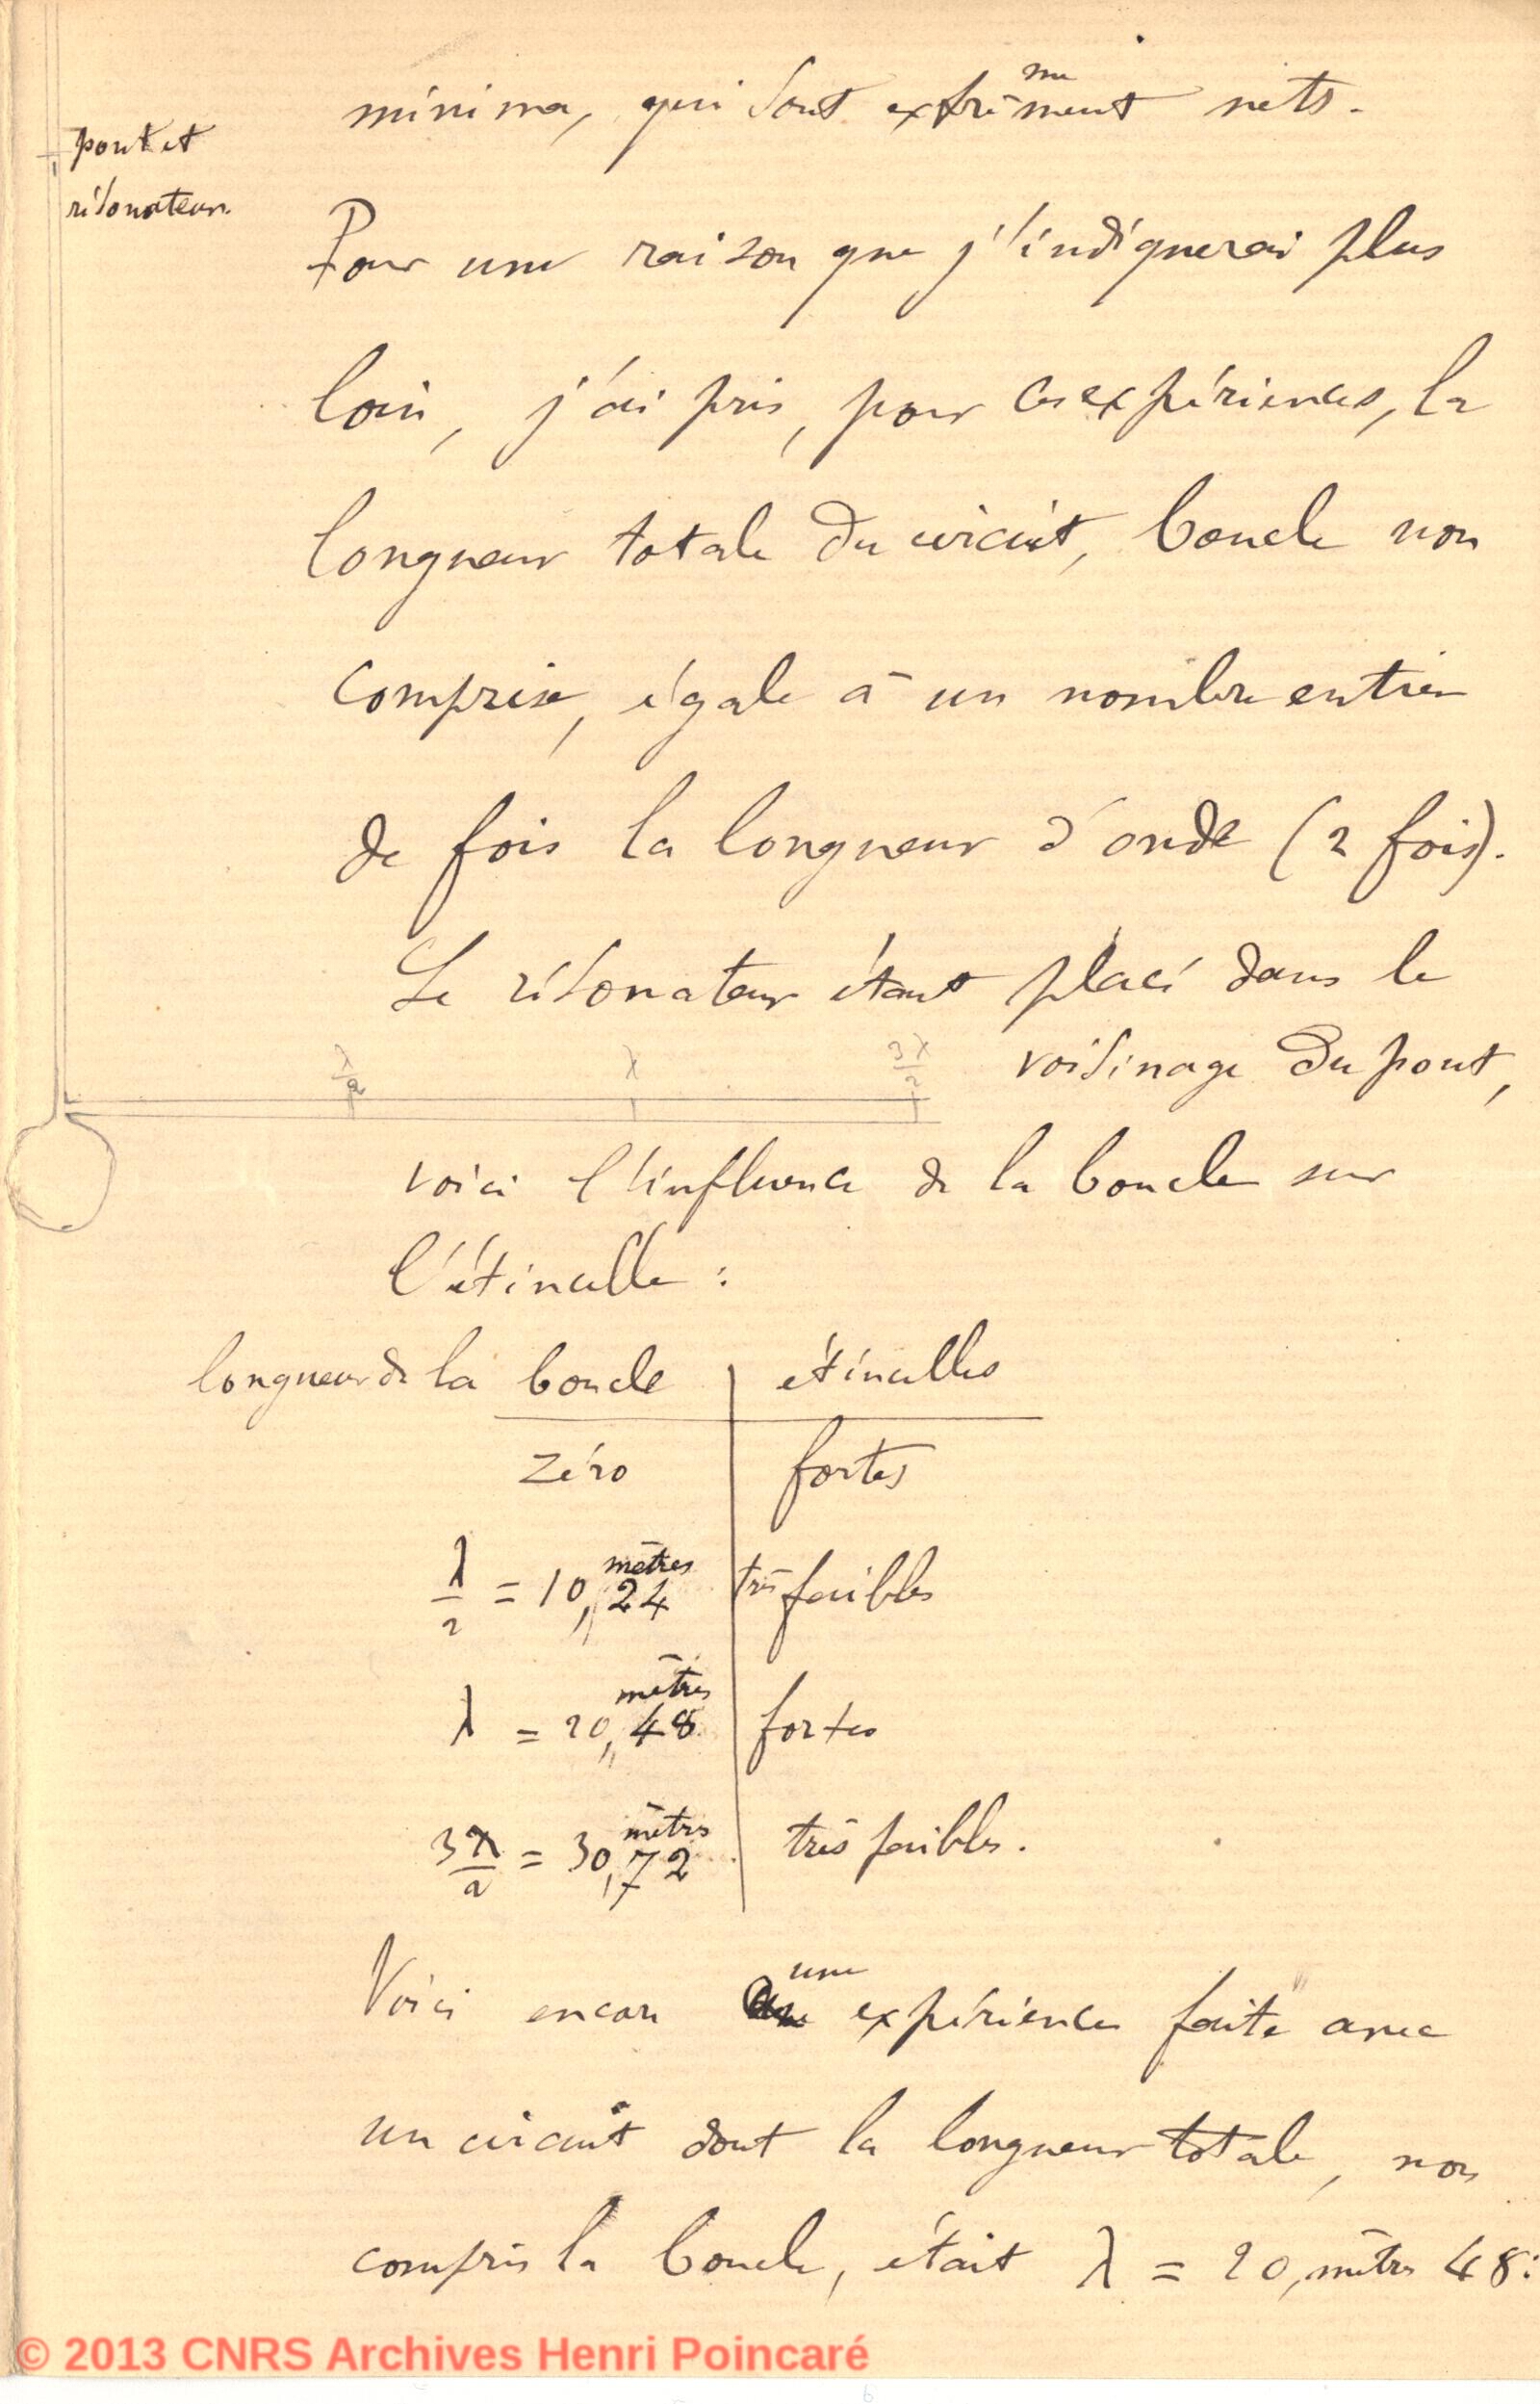 minima, qui sont extrêmement nets.
pont et
résonateur.
Pour une raison que j'indiquerai plus
loin, j'ai pris, pour ces expériences, la
longueur totale du circuit, boucle non
comprise, égale à un nombre entier
de fois la longueur d'onde (2 fois).
Le résonateur étant placé dans le
voisinage du pont,
λ/2 λ 3λ/2
voici l'influence de la boucle sur
l'étincelle :
longueur de la boucle étincelles
zéro fortes
λ/2 = 10, mètres 24 très faibles
λ = 20, mètres 48 fortes
3λ/2 = 30, mètres 72 très faibles.
Voici encore une expérience faite avec
un circuit dont la longueur totale, non
compris la boucle, était λ = 20, mètres 48 :
© 2013 CNRS Archives Henri Poincaré